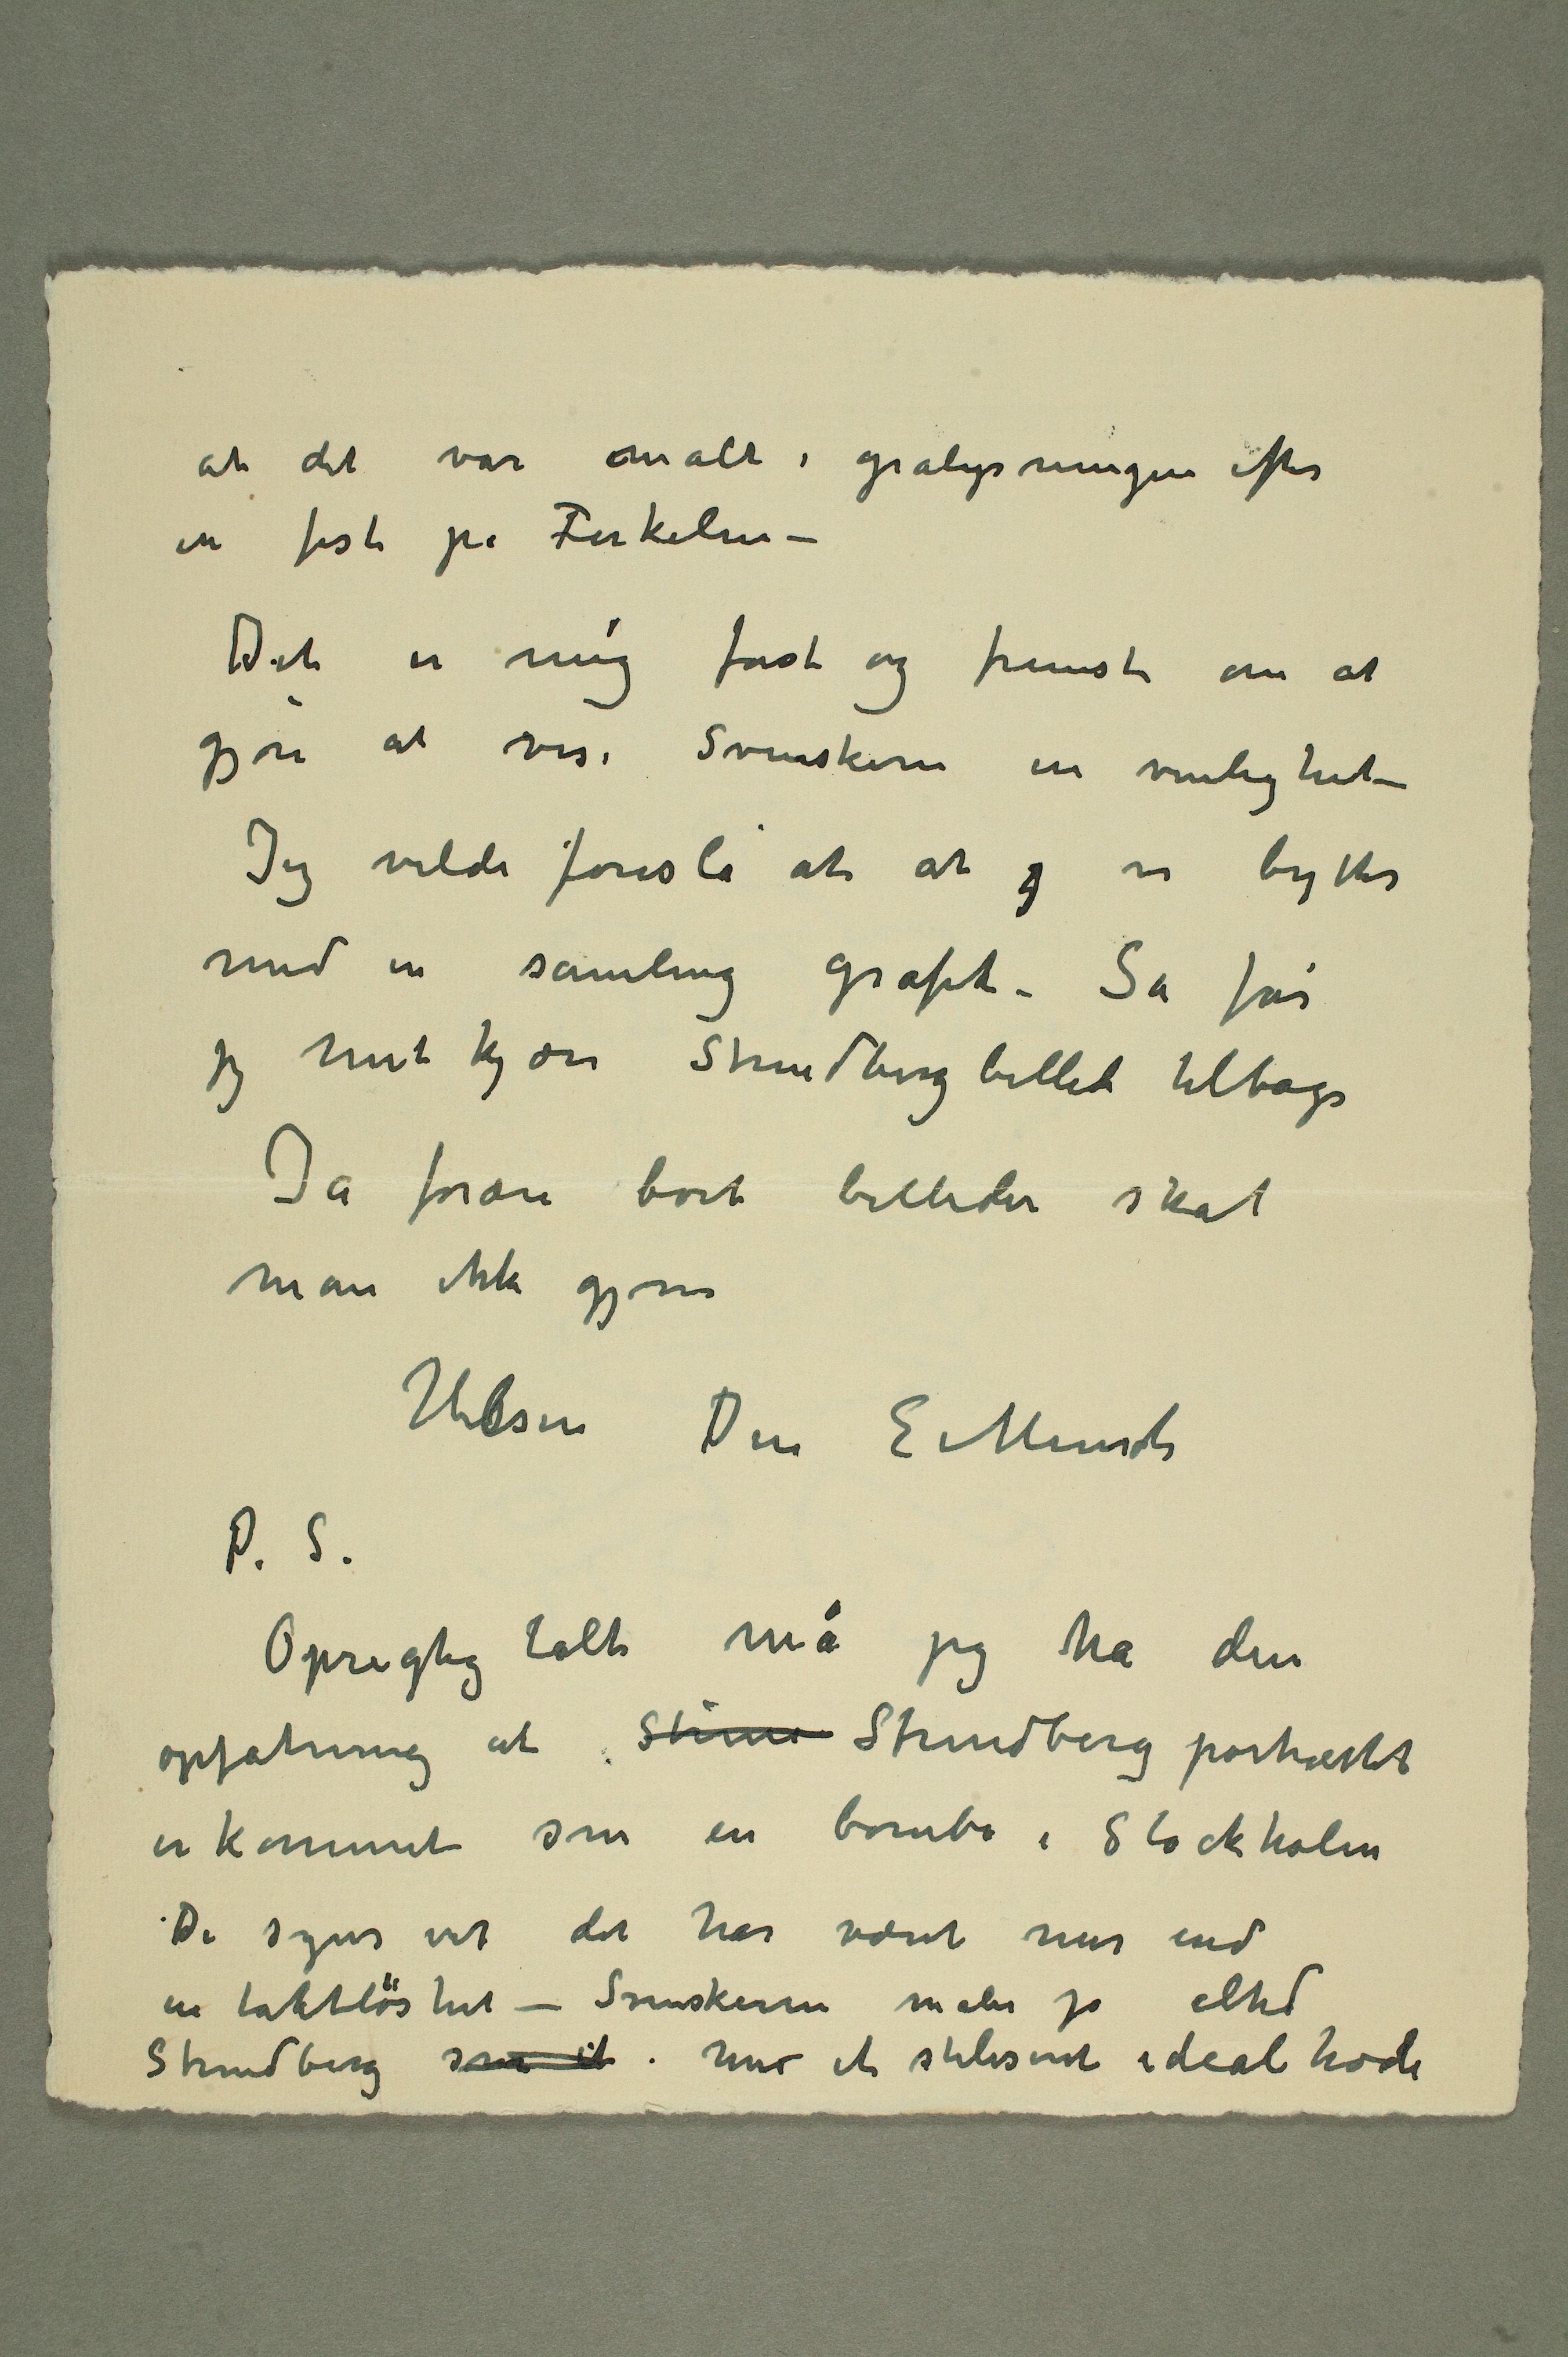 at det var malt i grålysningen efter
en fest på Ferkelen –
Det er mig først og fremst om at
gjøre at vise Svenskerne en venlighet –
Jeg vilde foreslå at at vi bytter
med en samling grafik – Så får
jeg mit kjære Strindbergbilled tilbage
Ja foræere bort billeder skal
man ikke gjøre
Hilsen Din E Munch
P. S.
Oprigtig talt må jeg ha den
opfatning at Strindberg portrættet
er kommet som en bombe i Stockholm
De synes vist det har været mer end
en taktløshet – Svenskerne maler jo altid
Strindberg som et med et stiliseret ideal hode